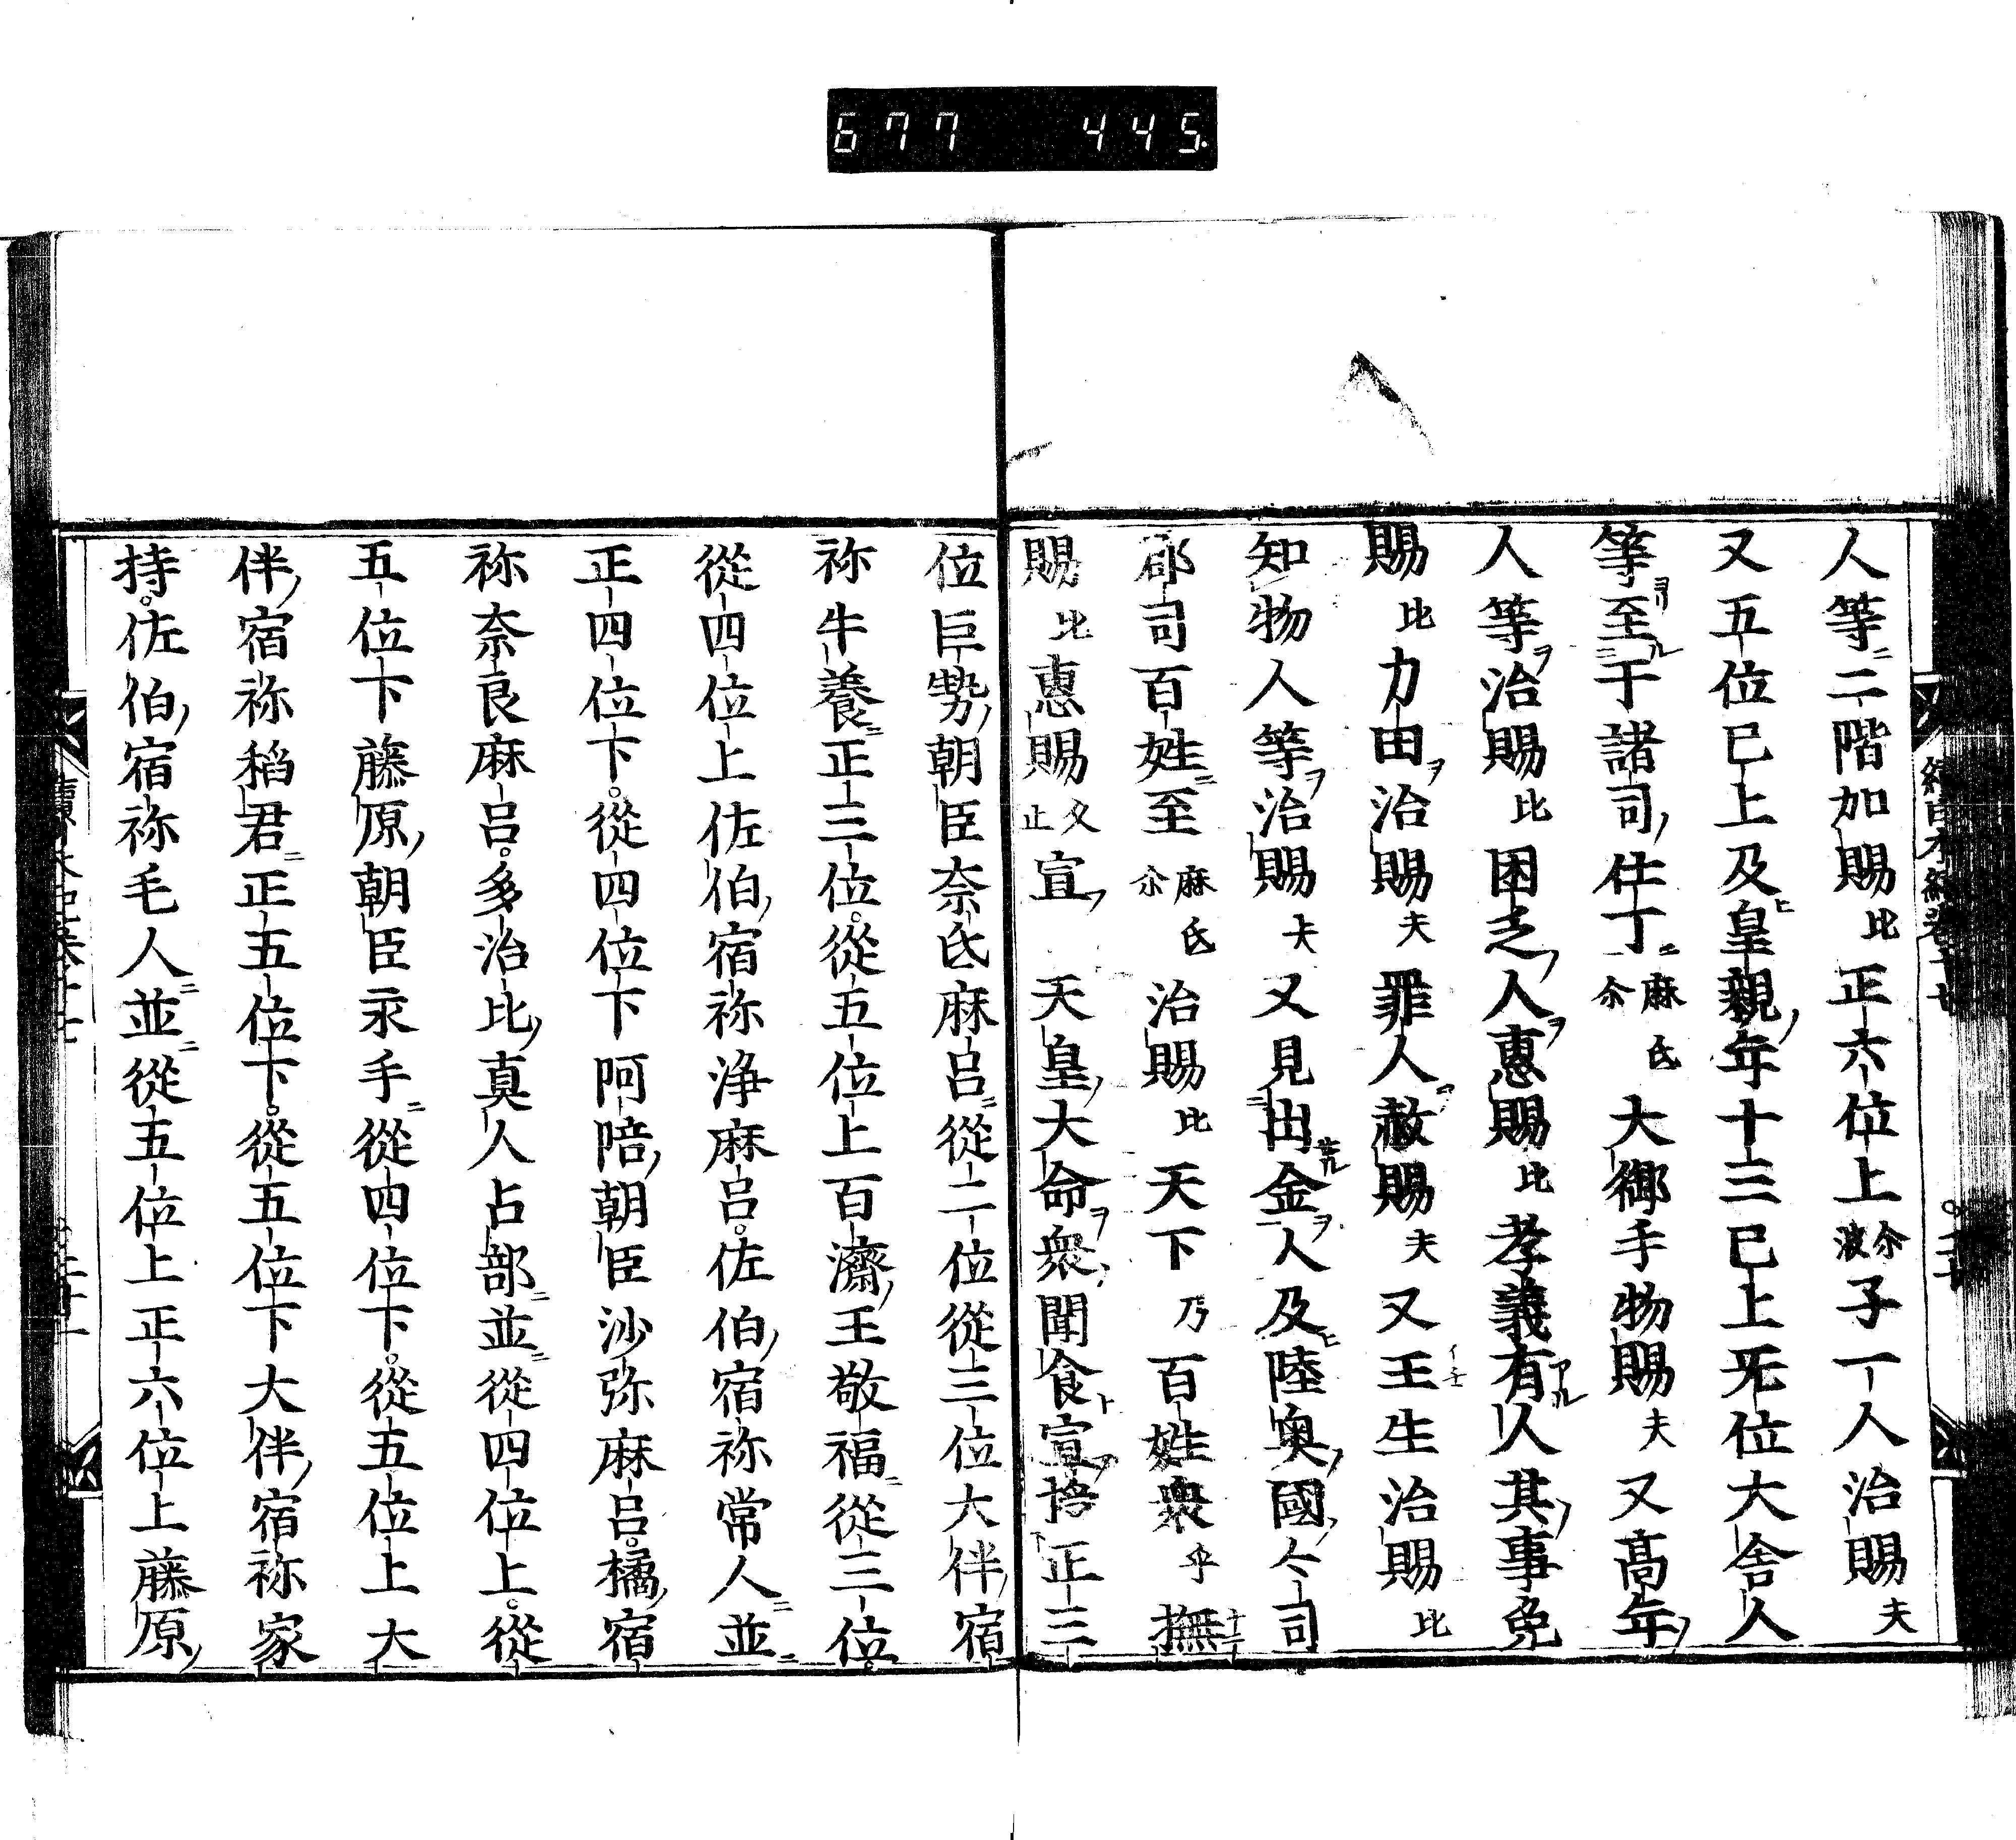 677 445
人等二階加賜比正六位上尒波子一人治賜夫
又五位已上及皇親年十三已上旡位大舎人
等至于諸司仕丁麻尒氐大御手物賜夫又髙年
人等治賜比困乏人惠賜比孝義有人其事免
賜比力田治賜夫罪人赦賜夫又壬生治賜比
知物人等治賜夫又見出金人及陸奥國々司
郡司百姓至麻尒氐治賜比天下乃百姓衆乎撫
賜比惠賜久止宣天皇大命衆聞食宣授正三
位巨勢朝臣奈氐麻呂從二位從三位大伴宿
祢牛養正三位從五位上百濟王敬福從三位
從四位上佐伯宿祢浄麻呂佐伯宿祢常人並
正四位下從四位下阿陪朝臣沙弥麻呂橘宿
祢奈良麻呂多治比真人占部並從四位上從
五位下藤原朝臣永手從四位下從五位上大
伴宿祢稻君正五位下從五位下大伴宿祢家
持佐伯宿祢毛人並從五位上正六位上藤原